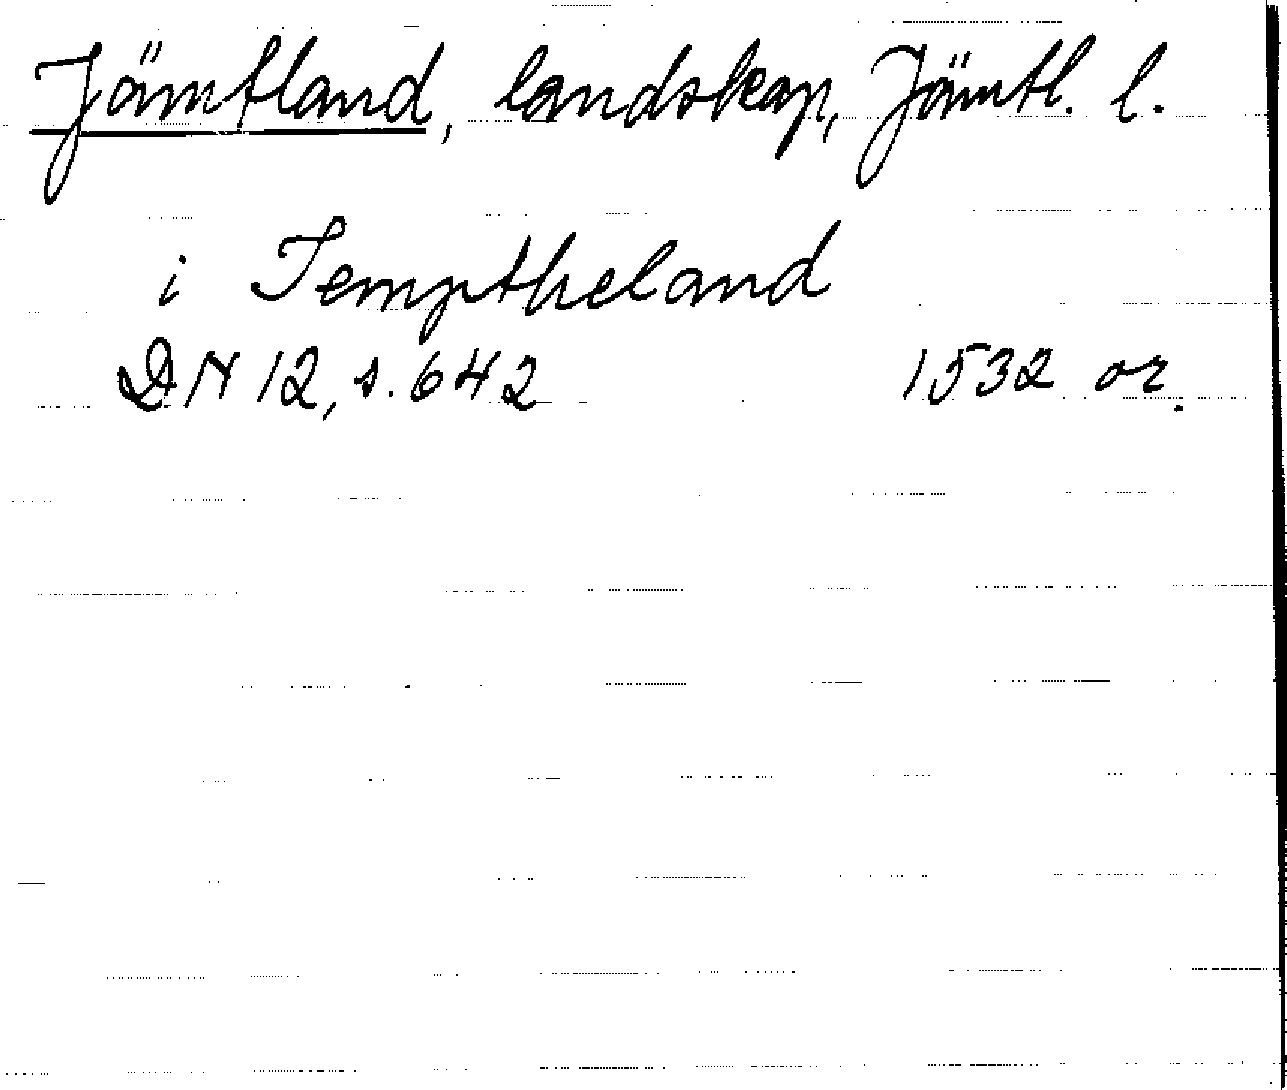 Jämtland, landskap, Jämtl. l.
i Iemptheland
DN 12, s. 642 1532 or.